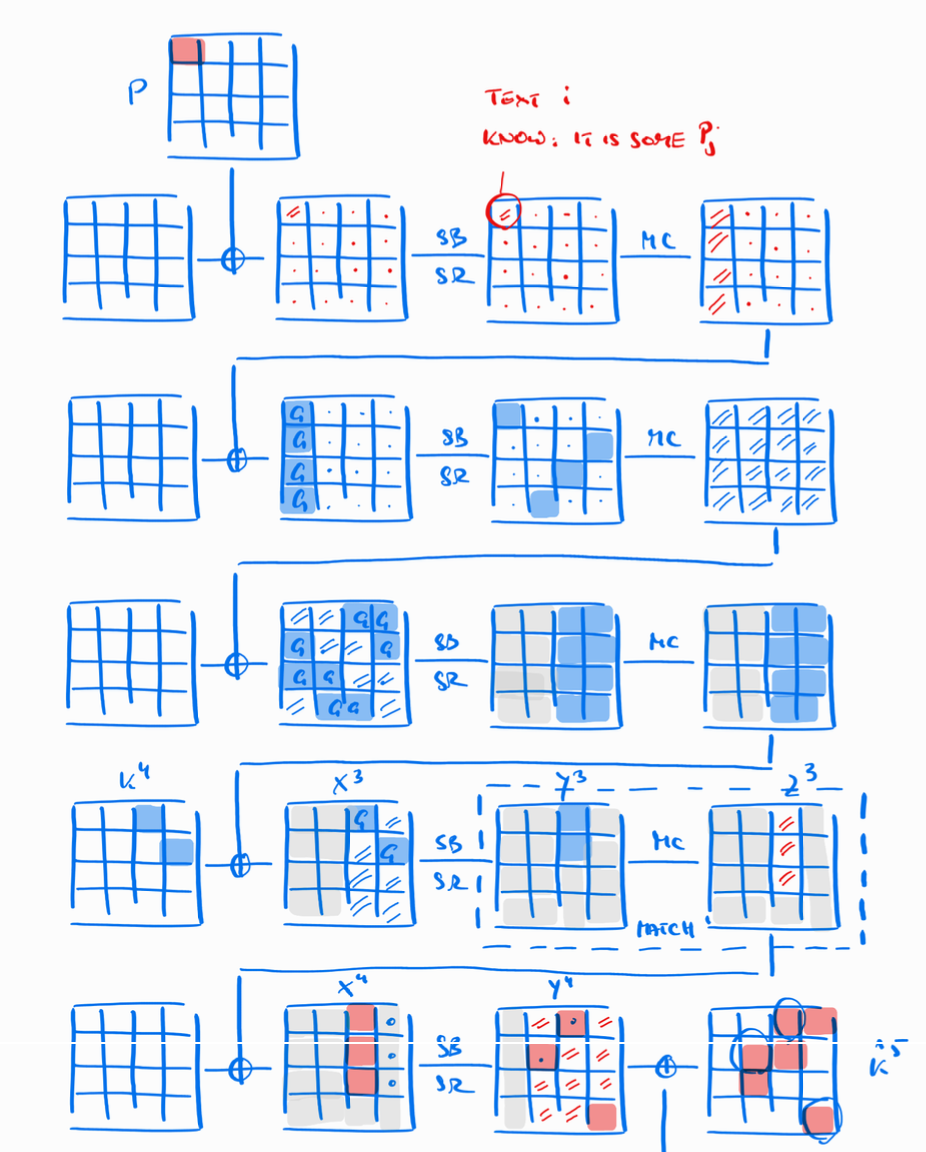 P
TEXT i
KNOW: IT IS SOME Pj
SB
SR
MC
G
G
G
G
SB
SR
MC
G G
G G
G G
G G
SB
SR
MC
K⁴
X³
Y³
Z³
G
G
SB
SR
MC
MATCH
X⁴
Y⁴
SB
SR